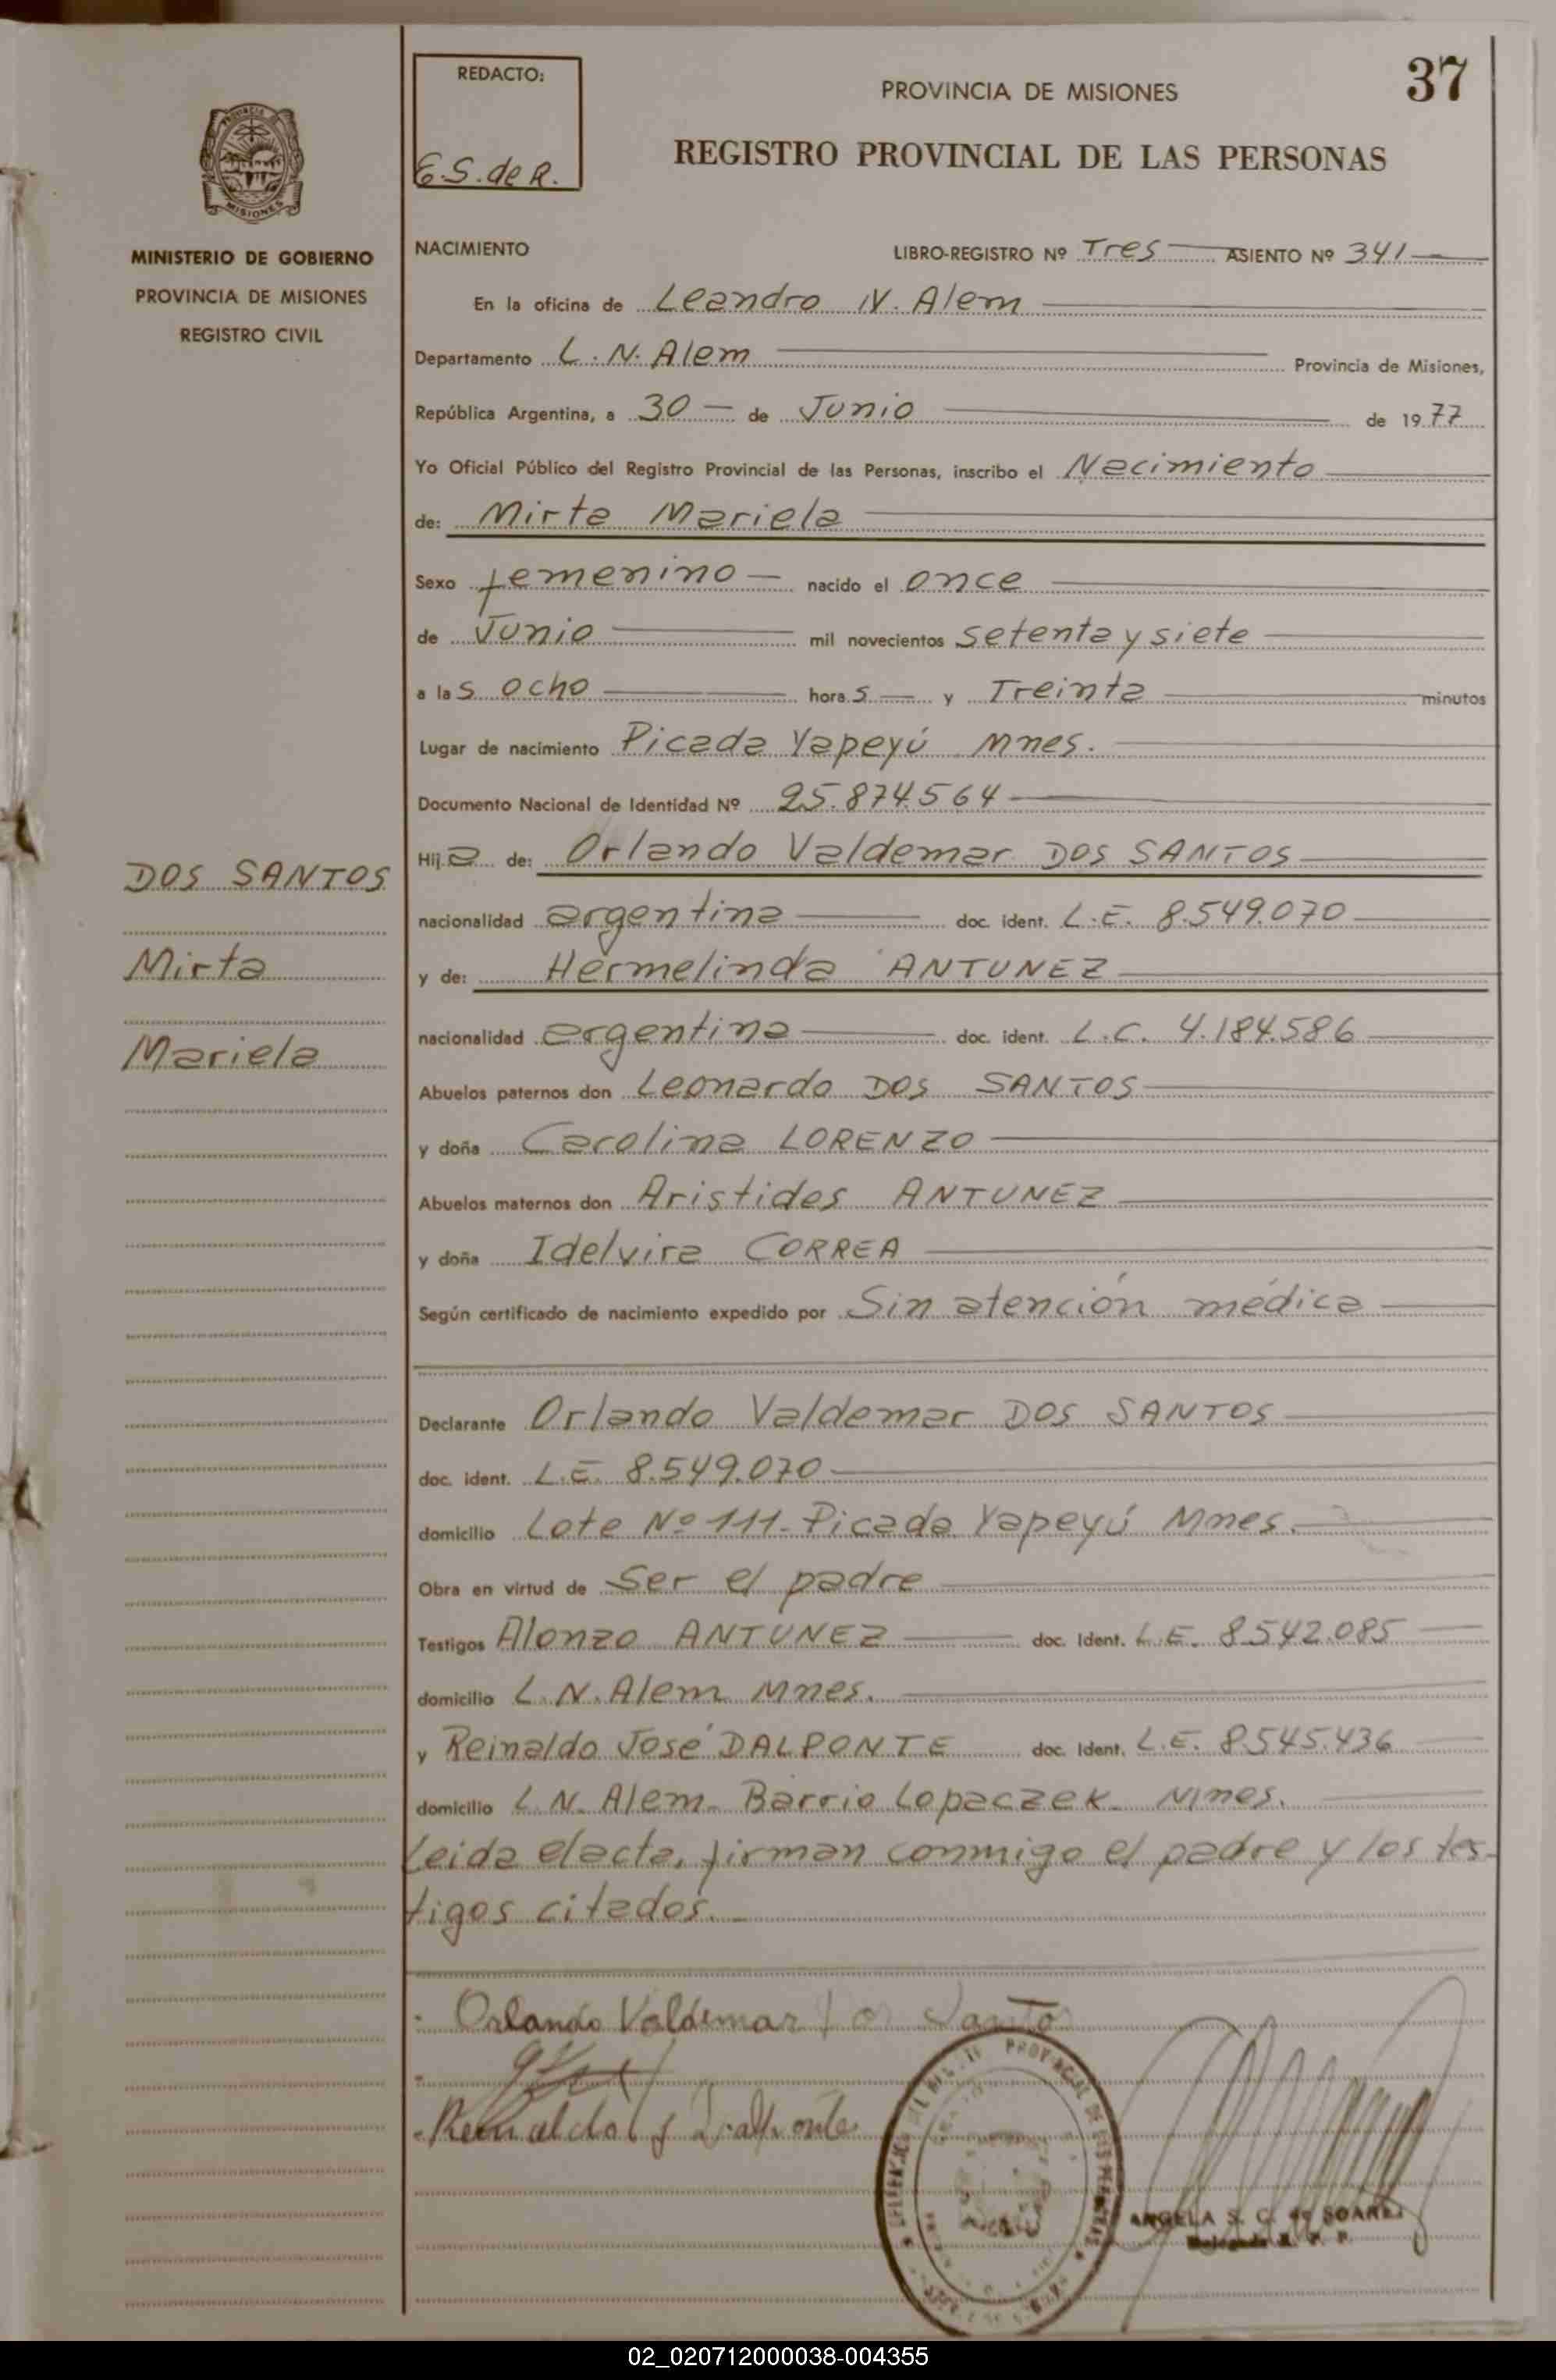 37
REDACTO:
E.S. de R.
PROVINCIA DE MISIONES
REGISTRO PROVINCIAL DE LAS PERSONAS
MISIONES
MINISTERIO DE GOBIERNO
PROVINCIA DE MISIONES
REGISTRO CIVIL
NACIMIENTO LIBRO-REGISTRO Nº Tres ASIENTO Nº 341
En la oficina de Leandro N. Alem
Departamento L. N. Alem Provincia de Misiones,
República Argentina, a 30 de Junio de 1977
Yo Oficial Público del Registro Provincial de las Personas, inscribo el Nacimiento
de: Mirta Mariela
Sexo femenino nacido el once
de Junio mil novecientos setenta y siete
a las ocho horas y Treinta minutos
Lugar de nacimiento Picada Yapeyú Mnes.
Documento Nacional de Identidad Nº 25.874.564
Hija de: Orlando Valdemar DOS SANTOS
nacionalidad argentina doc. ident. L.E. 8.549.070
y de: Hermelinda ANTUNEZ
nacionalidad argentina doc. ident. L.C. 4.184.586
Abuelos paternos don Leonardo DOS SANTOS
y doña Carolina LORENZO
Abuelos maternos don Aristides ANTUNEZ
y doña Idelvira CORREA
Según certificado de nacimiento expedido por Sin atención médica
Declarante Orlando Valdemar DOS SANTOS
doc. ident. L.E. 8.549.070
domicilio Lote Nº 111- Picada Yapeyú Mnes.
Obra en virtud de Ser el padre
Testigos Alonzo ANTUNEZ doc. Ident. L.E. 8.542.085
domicilio L.N. Alem Mnes.
y Reinaldo José DALPONTE doc. Ident. L.E. 8.545.436
domicilio L.N. Alem- Barrio Lopaczek- Mnes.
Leida el acta, firman conmigo el padre y los tes-
tigos citados.
DOS SANTOS
Mirta
Mariela
Orlando Valdemar Dos Santos
Reinaldo J Dalponte
PROVINCIAL DE LAS PERSONAS
ANGELA S. C. de SOARES
02_020712000038-004355